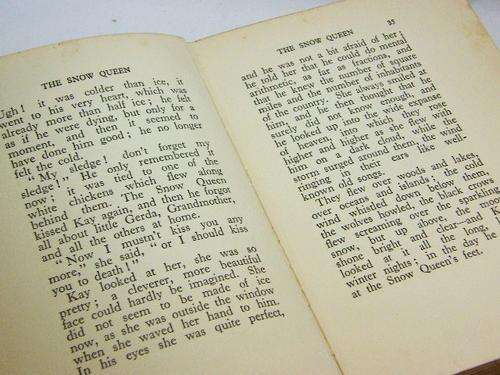 THE SNOW QUEEN
Ugh! it was colder than ice, it
went to his very heart, which was
already more than half ice; he felt
as if he were dying, but only for a
moment, and then it seemed to
have done him good; he no longer
felt the cold.
"My sledge! don't forget my
sledge!" He only remembered it
now; it was tied to one of the
white chickens which flew along
behind them. The Snow Queen
kissed Kay again, and then he forgot
all about little Gerda, Grandmother,
and all the others at home.
"Now I mustn't kiss you any
more," she said, "or I should kiss
you to death!"
Kay looked at her, she was so
pretty; a cleverer, more beautiful
face could hardly be imagined. She
did not seem to be made of ice
now, as she was outside the window
when she waved her hand to him.
In his eyes she was quite perfect,
THE SNOW QUEEN 35
and he was not a bit afraid of her;
he told her that he could do mental
arithmetic, as far as fractions, and
that he knew the number of square
miles and the number of inhabitants
of the country. She always smiled at
him, and he then thought that he
surely did not know enough, and
he looked up into the wide expanse
of heaven, into which they rose
higher and higher as she flew with
him on a dark cloud, while the
storm surged around them, the wind
ringing in their ears like well-
known old songs.
They flew over woods and lakes,
over oceans and islands; the cold
wind whistled down below them,
the wolves howled, the black crows
flew screaming over the sparkling
snow, but up above, the moon
shone bright and clear—and Kay
looked at it all the long, long
winter nights; in the day he slept
at the Snow Queen's feet.